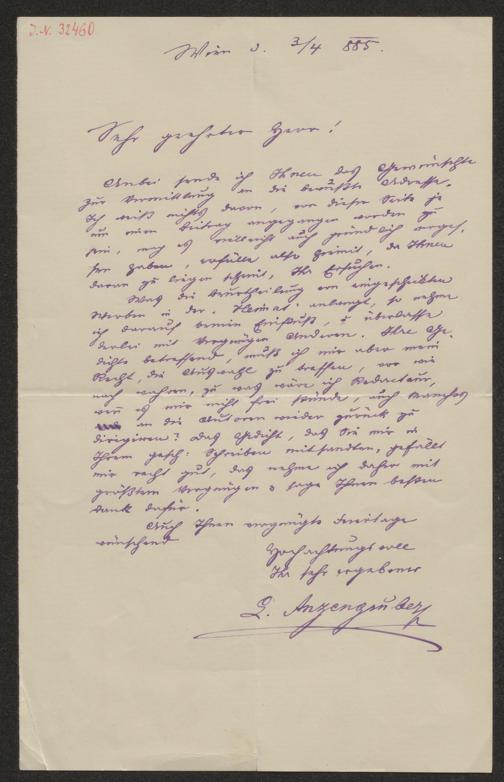 J.-N. 32460
Wien d. 3/4 885.
Sehr geehrter Herr!
Anbei sende ich Ihnen das Gewünschte
zur Vermittlung an die bewußte Adresse.
Ich weiß nichts davon, von dieser Seite je
um einen Beitrag angegangen worden zu
sein, mag es vielleicht auch gründlich verges-
sen haben, erfülle also hiemit, da Ihnen
daran zu liegen scheint, Ihr Ersuchen.
Was die Beurtheilung von eingeschickten
Werken in der "Heimat" anlangt, so nehme
ich darauf keinen Einfluß, u überlasse
derlei mit Vergnügen Anderen. Ihre Ge-
dichte betreffend, muß ich mir aber mein
Recht, die Auswahl zu treffen, vor wie
nach wahren, zu was wäre ich Redacteur,
wenn es mir nicht frei stünde, auch Manches
an die Autoren wieder zurück zu
dirigiren? Das Gedicht, das Sie mir in
Ihrem gesch: Schreiben mitsandten, gefällt
mir recht gut, das nehme ich daher mit
größtem Vergnügen u sage Ihnen besten
Dank dafür.
Auch Ihnen vergnügte Feiertage
wünschend
Hochachtungsvoll
Ihr sehr ergebener
L. Anzengruber